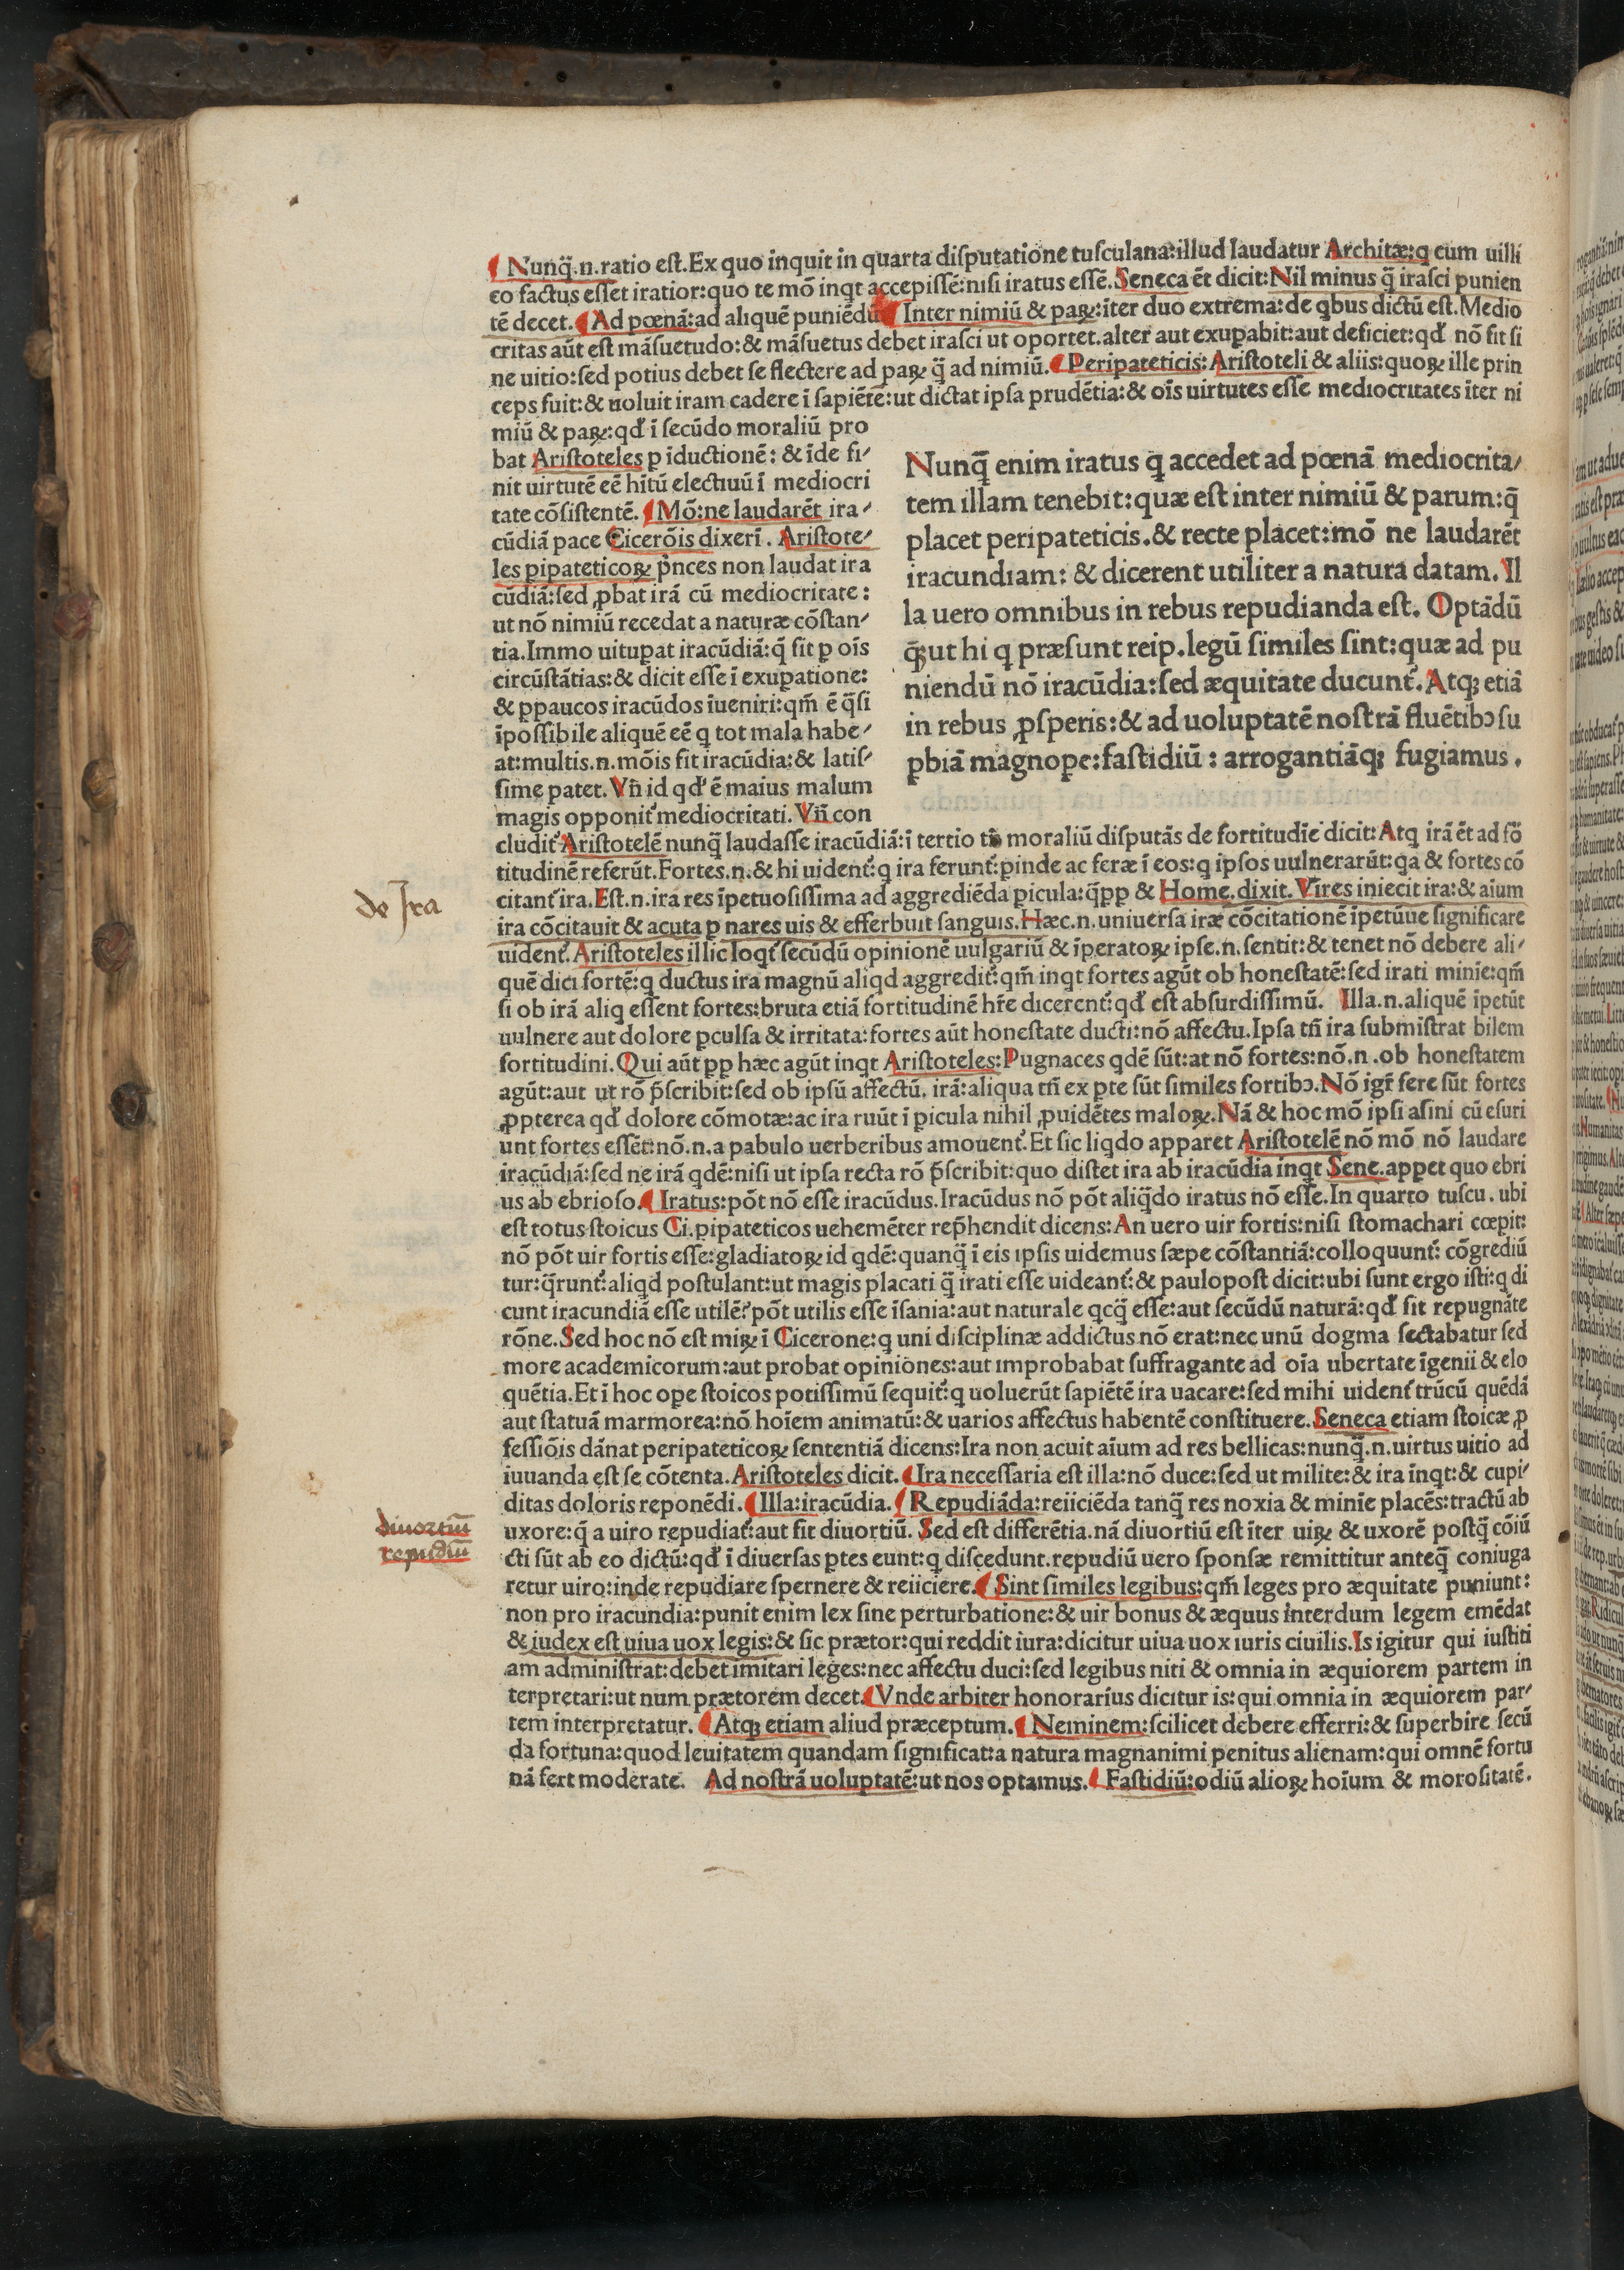 ¶ Nunq̃.n.ratio eſt.Ex quo inquit in quarta diſputatione tuſculana:illud laudatur Architæ:q cum uilli
co factus eſſet iratior:quo te mõ inqt accepiſſẽ:niſi iratus eſſẽ.Seneca ẽt dicit:Nil minus q̃ iraſci punien
tẽ decet.¶ Ad pœnã:ad aliquẽ puniẽdũ ¶ Inter nimiũ & paꝝ:ĩter duo extrema:de qbus dictũ eſt.Medio
critas aũt eſt mãſuetudo:& mãſuetus debet iraſci ut oportet.alter aut exupabit:aut deficiet:qd̛ nõ fit ſi
ne uitio:ſed potius debet ſe flectere ad paꝝ q̃ ad nimiũ.¶ Peripateticis:Ariſtoteli & aliis:quoꝝ ille prin
ceps fuit:& uoluit iram cadere ĩ ſapiẽtẽ:ut dictat ipſa prudẽtia:& oĩs uirtutes eſſe mediocritates ĩter ni
miũ & paꝝ:qd̛ ĩ ſecũdo moraliũ pro
bat Ariſtoteles p ĩductionẽ: & ĩde fi⸗
nit uirtutẽ eẽ hĩtũ electiuũ ĩ mediocri
tate cõſiſtentẽ. ¶ Mõ:ne laudarẽt ira⸗
cũdiã pace Cicerõis dixerĩ. Ariſtote⸗
les pipateticoꝝ p̃nces non laudat ira
cũdiã:ſed ꝓbat irã cũ mediocritate:
ut nõ nimiũ recedat a naturæ cõſtan⸗
tia.Immo uitupat iracũdiã:q̃ fit p oĩs
circũſtãtias:& dicit eſſe ĩ exupatione:
& ppaucos iracũdos ĩueniri:qm̃ ẽ q̃ſi
ĩpoſſibile aliquẽ eẽ q tot mala habe⸗
at:multis.n.mõis fit iracũdia:& latiſ⸗
ſime patet.Vñ id qd̛ ẽ maius malum
magis opponit᷑ mediocritati. Vñ con
Nunq̃ enim iratus q accedet ad pœnã mediocrita⸗
tem illam tenebit:quæ eſt inter nimiũ & parum:q̃
placet peripateticis.& recte placet:mõ ne laudarẽt
iracundiam: & dicerent utiliter a natura datam. Il
la uero omnibus in rebus repudianda eſt. Optãdũ
q̃;ut hi q præſunt reip.legũ ſimiles ſint:quæ ad pu
niendũ nõ iracũdia:ſed æquitate ducunt᷑. Atq; etiã
in rebus ꝓſperis:& ad uoluptatẽ noſtrã fluẽtibꝰ ſu
pbiã magnope:faſtidiũ: arrogantiãq; fugiamus.
cludit᷑ Ariſtotelẽ nunq̃ laudaſſe iracũdiã:ĩ tertio moraliũ diſputãs de fortitudĩe dicit:Atq irã ẽt ad fõ
titudinẽ referũt.Fortes.n.& hi uident᷑:q ira ferunt᷑:pinde ac feræ ĩ eos:q ipſos uulnerarũt:qa & fortes cõ
citant᷑ ira.Eſt.n.ira res ĩpetuoſiſſima ad aggrediẽda picula:q̃pp & Home.dixit.Vires iniecit ira:& aĩum
ira cõcitauit & acuta p nares uis & efferbuit ſanguis.Hæc.n.uniuerſa iræ cõcitationẽ ĩpetũue ſignificare
uident᷑.Ariſtoteles illic loqt᷑ ſecũdũ opinionẽ uulgariũ & ĩperatoꝝ ipſe.n.ſentit:& tenet nõ debere ali⸗
quẽ dici fortẽ:q ductus ira magnũ aliqd aggredit᷑:qm̃ inqt fortes agũt ob honeſtatẽ:ſed irati minĩe:qm̃
ſi ob irã aliq eſſent fortes:bruta etiã fortitudinẽ hr̃e dicerent᷑:qd̛ eſt abſurdiſſimũ. Illa.n.aliquẽ ĩpetũt
uulnere aut dolore pculſa & irritata:fortes aũt honeſtate ducti:nõ affectu.Ipſa tñ ira ſubmiſtrat bilem
fortitudini.Qui aũt pp hæc agũt inqt Ariſtoteles:Pugnaces qdẽ ſũt:at nõ fortes:nõ.n.ob honeſtatem
agũt:aut ut rõ p̃ſcribit:ſed ob ipſũ affectũ, irã:aliqua tñ ex pte ſũt ſimiles fortibꝰ.Nõ igr̃ fere ſũt fortes
ꝓpterea qd̛ dolore cõmotæ:ac ira ruũt ĩ picula nihil ꝓuidẽtes maloꝝ.Nã & hoc mõ ipſi aſini cũ eſuri
unt fortes eſſẽt:nõ.n.a pabulo uerberibus amouent᷑.Et ſic liqdo apparet Ariſtotelẽ nõ mõ nõ laudare
iracũdiã:ſed ne irã qdẽ:niſi ut ipſa recta rõ p̃ſcribit:quo diſtet ira ab iracũdia inqt Sene.appet quo ebri
us ab ebrioſo.¶ Iratus:põt nõ eſſe iracũdus.Iracũdus nõ põt aliq̃do iratus nõ eſſe.In quarto tuſcu.ubi
eſt totus ſtoicus Ci.pipateticos uehemẽter rep̃hendit dicens:An uero uir fortis:niſi ſtomachari cœpit:
nõ põt uir fortis eſſe:gladiatoꝝ id qdẽ:quanq̃ ĩ eis ipſis uidemus ſæpe cõſtantiã:colloquunt᷑: cõgrediũ
tur:q̃runt᷑:aliqd poſtulant:ut magis placati q̃ irati eſſe uideant᷑:& paulopoſt dicit:ubi ſunt ergo iſti:q di
cunt iracundiã eſſe utilẽ?põt utilis eſſe ĩſania:aut naturale qcq̃ eſſe:aut ſecũdũ naturã:qd̛ ſit repugnãte
rõne.Sed hoc nõ eſt miꝝ ĩ Cicerone:q uni diſciplinæ addictus nõ erat:nec unũ dogma ſectabatur ſed
more academicorum:aut probat opiniones:aut improbabat ſuffragante ad oĩa ubertate ĩgenii & elo
quẽtia.Et ĩ hoc ope ſtoicos potiſſimũ ſequit᷑:q uoluerũt ſapiẽtẽ ira uacare:ſed mihi uident᷑ trũcũ quẽdã
aut ſtatuã marmorea:nõ hoĩem animatũ:& uarios affectus habentẽ conſtituere.Seneca etiam ſtoicæ ꝓ
feſſiõis dãnat peripateticoꝝ ſententiã dicens:Ira non acuit aĩum ad res bellicas:nunq̃.n.uirtus uitio ad
iuuanda eſt ſe cõtenta.Ariſtoteles dicit.¶ Ira neceſſaria eſt illa:nõ duce:ſed ut milite:& ira inqt:& cupi⸗
ditas doloris reponẽdi.¶ Illa:iracũdia.¶ Repudiãda:reiiciẽda tanq̃ res noxia & minĩe placẽs:tractũ ab
uxore:q̃ a uiro repudiat᷑:aut fit diuortiũ. Sed eſt differẽtia.nã diuortiũ eſt ĩter uiꝝ & uxorẽ poſtq̃ cõiũ
cti ſũt ab eo dictũ:qd̛ ĩ diuerſas ptes eunt:q diſcedunt.repudiũ uero ſponſæ remittitur anteq̃ coniuga
retur uiro:inde repudiare ſpernere & reiicere.¶ Sint ſimiles legibus:qm̃ leges pro æquitate puniunt:
non pro iracundia:punit enim lex ſine perturbatione:& uir bonus & æquus interdum legem emẽdat
& iudex eſt uiua uox legis:& ſic prætor:qui reddit iura:dicitur uiua uox iuris ciuilis.Is igitur qui iuſtiti
am adminiſtrat:debet imitari leges:nec affectu duci:ſed legibus niti & omnia in æquiorem partem in
terpretari:ut num prætorem decet.¶ Vnde arbiter honorarius dicitur is:qui omnia in æquiorem par⸗
tem interpretatur. ¶ Atq; etiam aliud præceptum.¶ Neminem:ſcilicet debere efferri:& ſuperbire ſecũ
da fortuna:quod leuitatem quandam ſignificat:a natura magnanimi penitus alienam:qui omnẽ fortu
nã fert moderate. Ad noſtrã uoluptatẽ:ut nos optamus.¶ Faſtidiũ:odiũ alioꝝ hoĩum & moroſitatẽ.
de Ira
diuortiũ
repudiũ